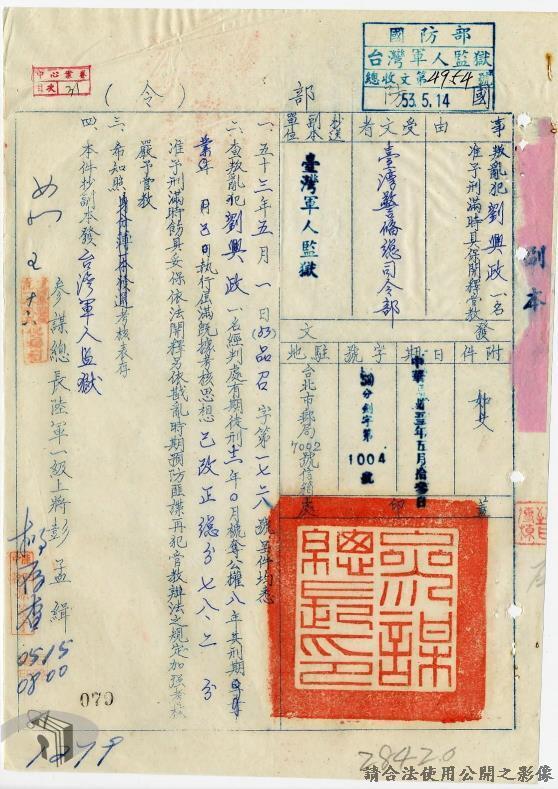 國防部
台灣軍人監獄
總收文第4954號
53.5.14
中心業務
目次
國防部（令）
副本
事由
叛亂犯劉興政一名准予刑滿時具保開釋管教
受文者
臺灣警備總司令部
副本抄送單位
臺灣軍人監獄
附件
如文
發文
日期
中華民國五三年五月拾參日
字號
分剑字第1004號
駐地
台北市郵局7002號信箱
蓋印
參謀總長印
一、五十三年五月一日(53)品召字第一七二八號呈件均悉
二、查叛亂犯劉興政一名經判處有期徒刑十二年0月褫奪公權八年其刑期
月 日執行屆滿既據考核思想已改正總分七八.二分
准予刑滿時飭具妥保依法開釋另依戡亂時期預防匪諜再犯管教辦法之規定加強考核
嚴予管教
三、希知照 考核表存
四、本件抄副本發台灣軍人監獄
參謀總長陸軍一級上將彭孟緝
0515
0800
079
1279
28420
請合法使用公開之影像